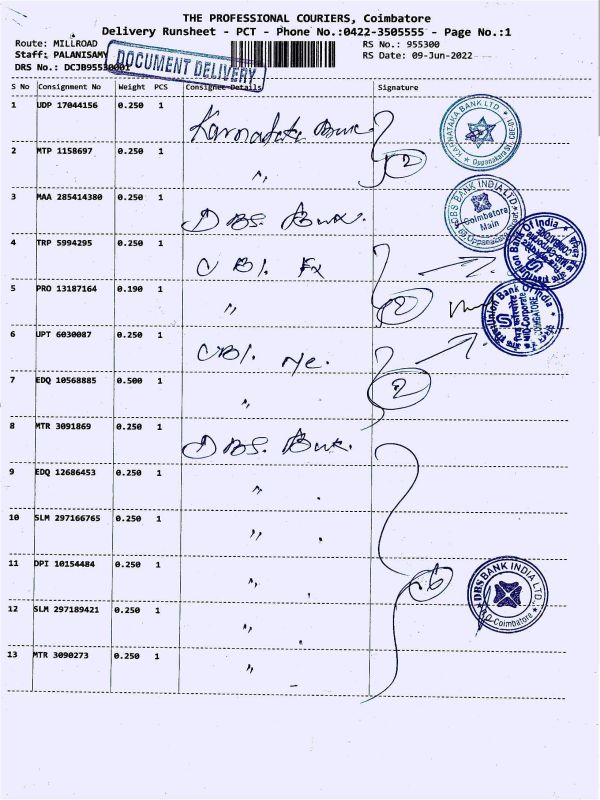 THE PROFESSIONAL COURIERS, Coimbatore
Delivery Runsheet - PCT - Phone No.:0422-3505555 - Page No.:1
Route: MILLROAD RS No.: 955300
Staff: PALANISAMY RS Date: 09-Jun-2022
DRS No.: DCJB95530001
DOCUMENT DELIVERY
S No Consignment No Weight PCS Consignee Details Signature
1 UDP 17044156 0.250 1 Karnataka Bank
KARNATAKA BANK LTD
2 MTP 1158697 0.250 1 〃 2
3 MAA 285414380 0.250 1 DBS. Bank.
DBS BANK INDIA LTD.
Coimbatore
Main
4 TRP 5994295 0.250 1 UBI. Fx
Union Bank Of India
5 PRO 13187164 0.190 1 〃 2
Union Bank Of India
COIMBATORE
6 UPT 6030087 0.250 1 UBI.
7 EDQ 10568885 0.500 1 〃 2
8 MTR 3091869 0.250 1 DBS. Bank.
9 EDQ 12686453 0.250 1 〃
10 SLM 297166765 0.250 1 〃
11 DPI 10154484 0.250 1 〃 6
DBS BANK INDIA LTD.
Coimbatore
12 SLM 297189421 0.250 1 〃
13 MTR 3090273 0.250 1 〃